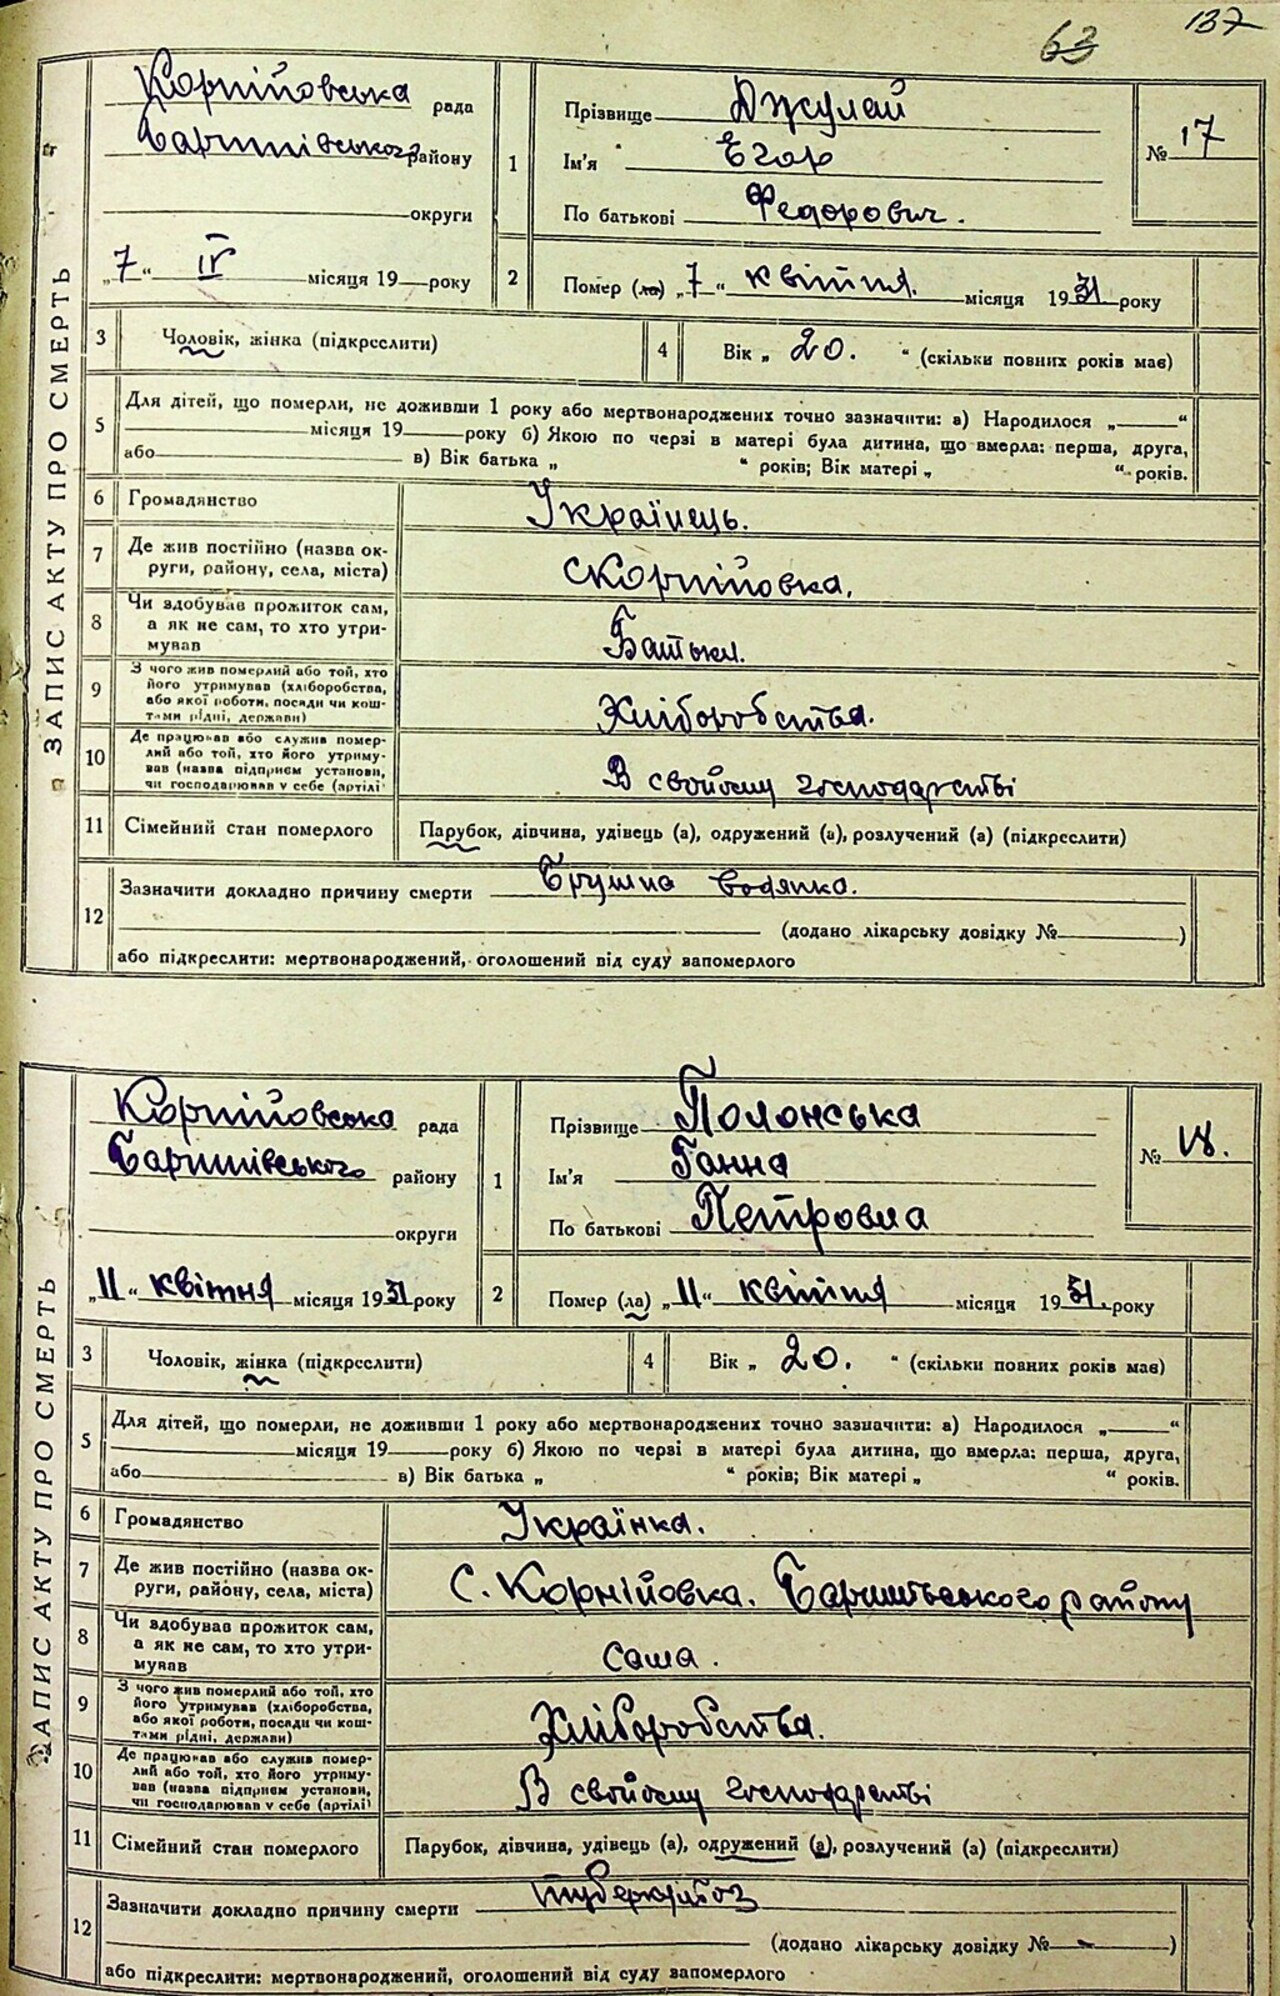 137
63
ЗАПИС АКТУ ПРО СМЕРТЬ
Корнійовська рада
Баришівського району
округи
„7“ IV місяця 19 року
1
Прізвище Джулай
Ім'я Егор
По батькові Федорович.
№ 17
2
Помер (ла) „7“ квітня. місяця 1931 року
3 Чоловік, жінка (підкреслити)
4 Вік „ 20. “ (скільки повних років має)
5 Для дітей, що померли, не доживши 1 року або мертвонароджених точно зазначити: а) Народилося „ “
місяця 19 року б) Якою по черзі в матері була дитина, що вмерла: перша, друга,
або в) Вік батька „ “ років; Вік матері „ “ років.
6 Громадянство Українець.
7 Де жив постійно (назва ок-
руги, району, села, міста) С Корнійовка.
8 Чи здобував прожиток сам,
а як не сам, то хто утри-
мував Батьки.
9 З чого жив померлий або той, хто
його утримував (хліборобства,
або якої роботи, посади чи кош-
тами рідні, держави) Хліборобства.
10 Де працював або служив помер-
лий або той, хто його утриму-
вав (назва підприєм установи,
чи господарював у себе (артілі) В свойому господарстві
11 Сімейний стан померлого Парубок, дівчина, удівець (а), одружений (а), розлучений (а) (підкреслити)
12 Зазначити докладно причину смерти Брушна водянка.
(додано лікарську довідку № )
або підкреслити: мертвонароджений, оголошений від суду запомерлого
ЗАПИС АКТУ ПРО СМЕРТЬ
Корнійовська рада
Баришівського району
округи
„11“ квітня місяця 1931 року
1
Прізвище Полонська
Ім'я Ганна
По батькові Петровна
№ 18.
2
Помер (ла) „11“ квітня місяця 1931. року
3 Чоловік, жінка (підкреслити)
4 Вік „ 20. “ (скільки повних років має)
5 Для дітей, що померли, не доживши 1 року або мертвонароджених точно зазначити: а) Народилося „ “
місяця 19 року б) Якою по черзі в матері була дитина, що вмерла: перша, друга,
або в) Вік батька „ “ років; Вік матері „ “ років.
6 Громадянство Українка.
7 Де жив постійно (назва ок-
руги, району, села, міста) С. Корнійовка. Баришівського району
8 Чи здобував прожиток сам,
а як не сам, то хто утри-
мував сама.
9 З чого жив померлий або той, хто
його утримував (хліборобства,
або якої роботи, посади чи кош-
тами рідні, держави) Хліборобства.
10 Де працював або служив помер-
лий або той, хто його утриму-
вав (назва підприєм установи,
чи господарював у себе (артілі) В свойому господарстві
11 Сімейний стан померлого Парубок, дівчина, удівець (а), одружений (а), розлучений (а) (підкреслити)
12 Зазначити докладно причину смерти туберкульоз
(додано лікарську довідку № )
або підкреслити: мертвонароджений, оголошений від суду запомерлого